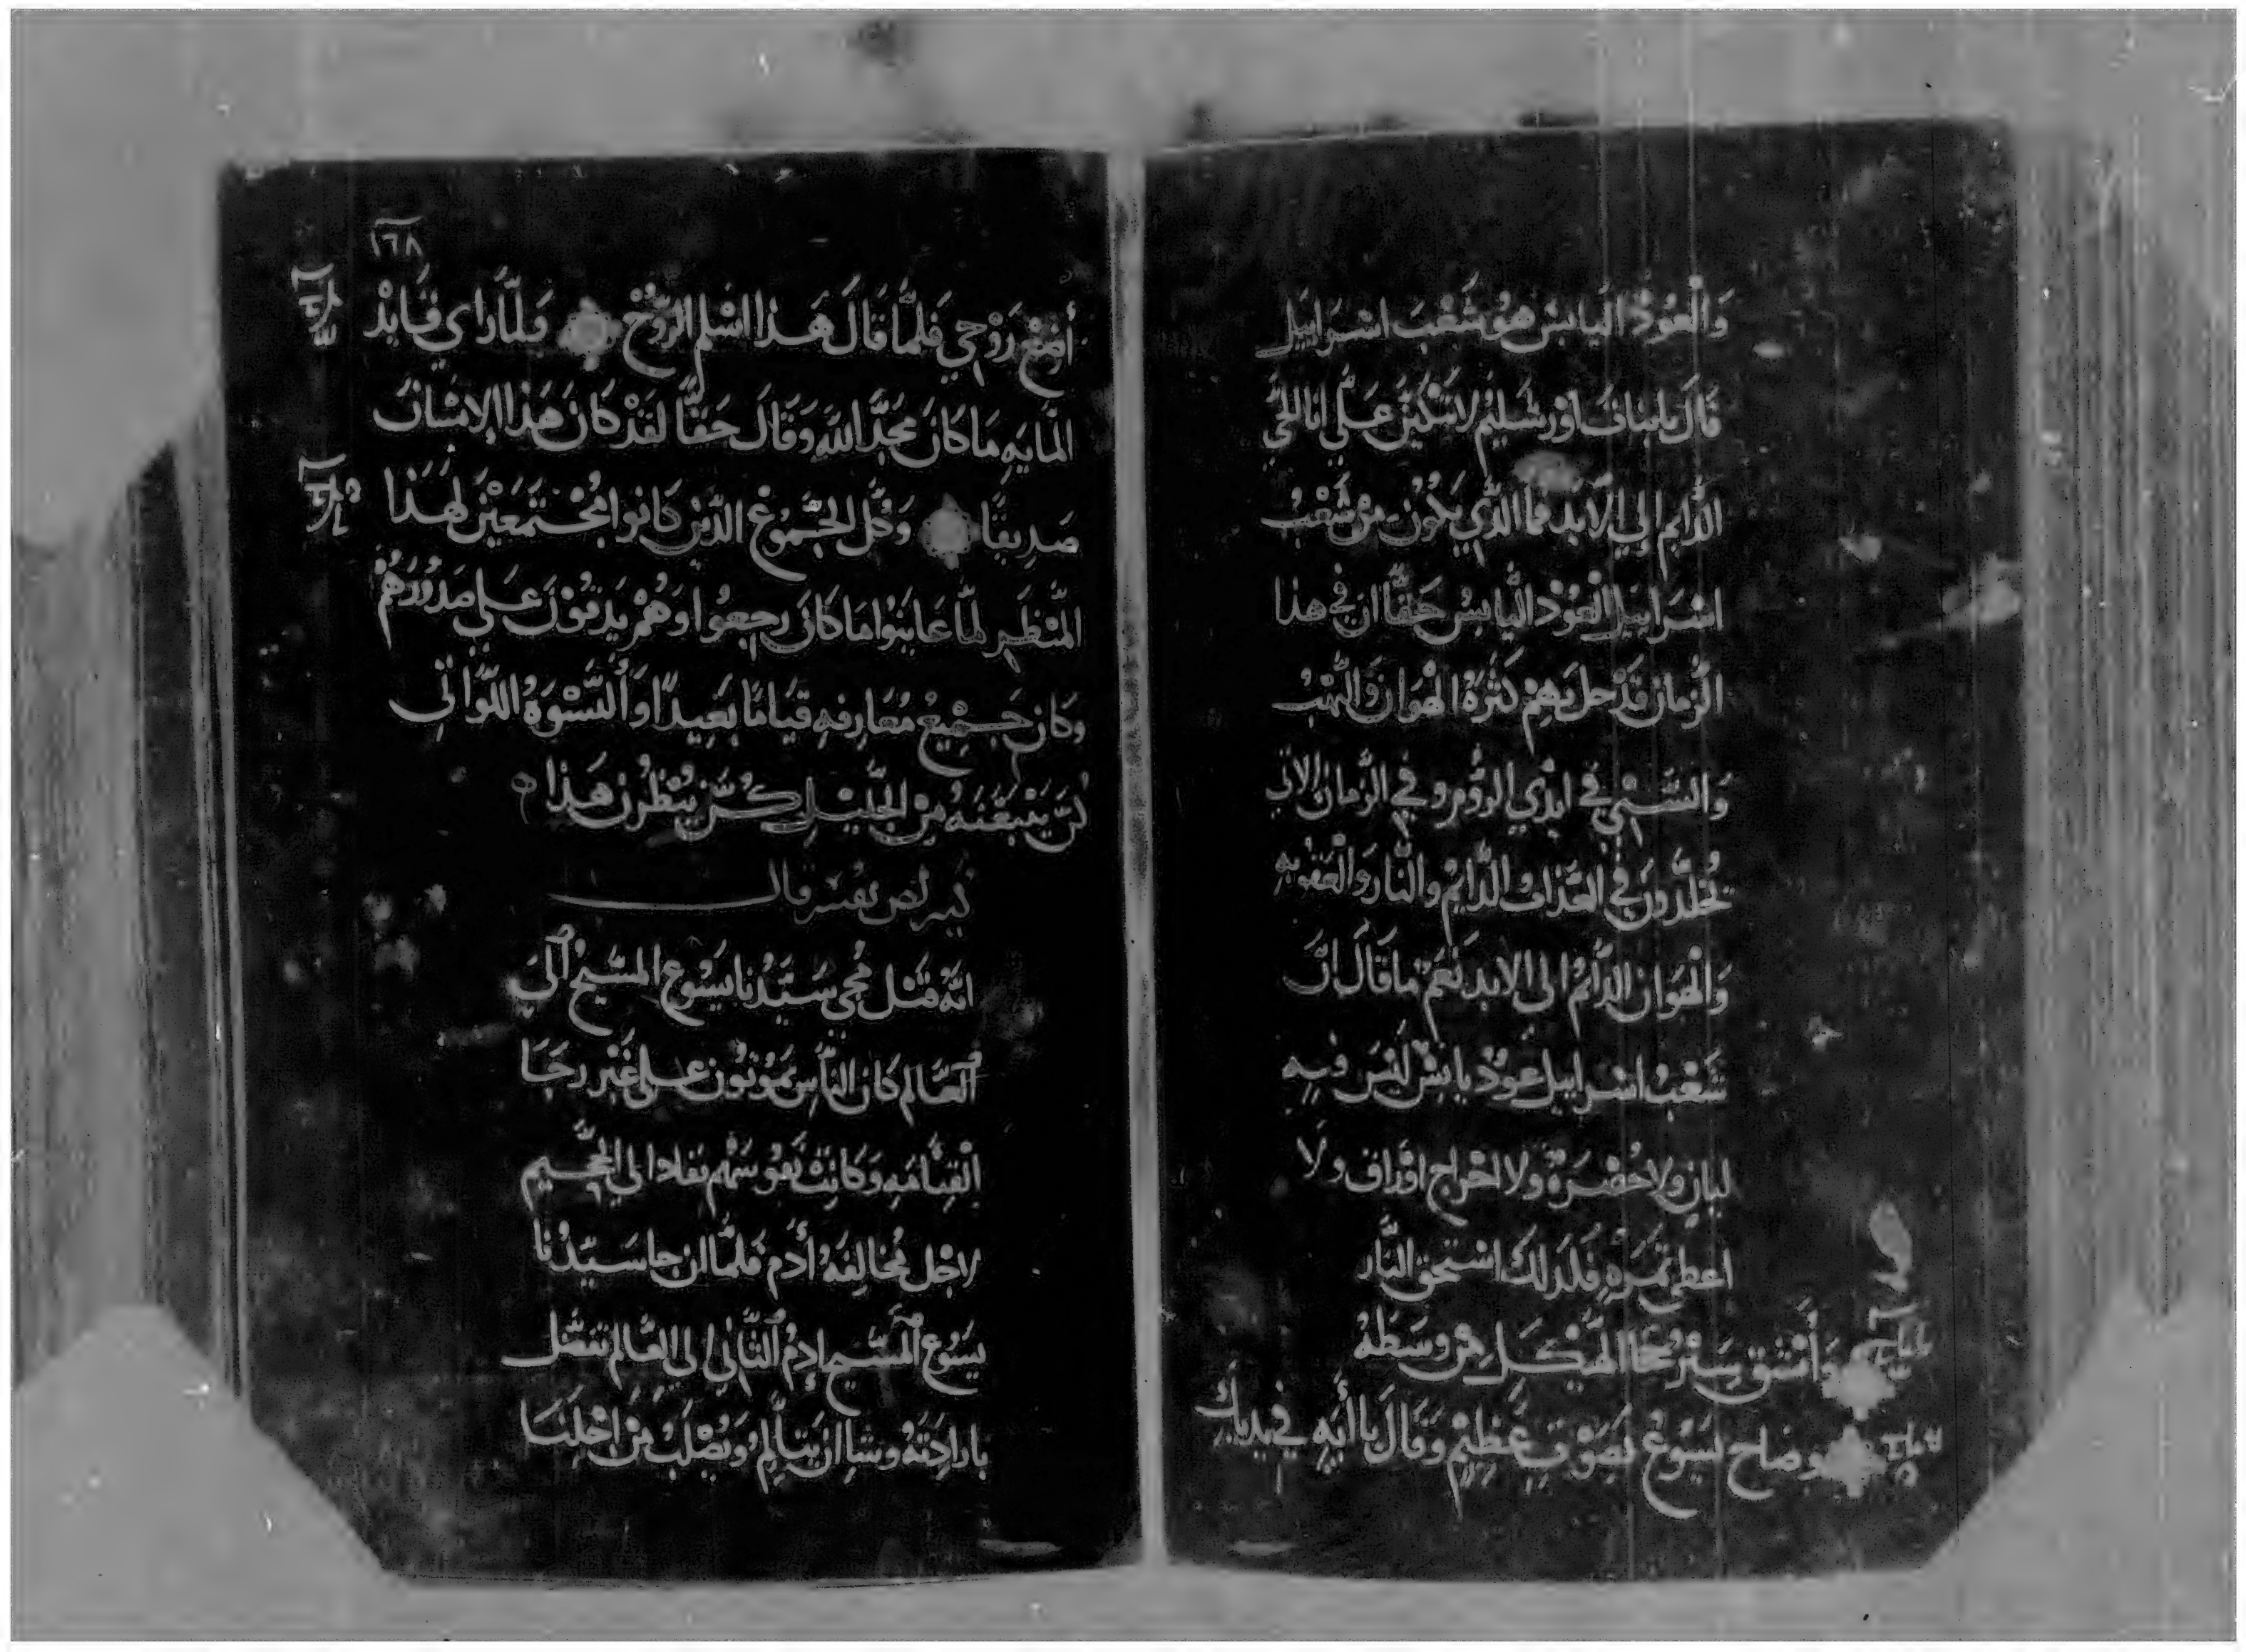 وَالْعُوْدُ اليَابسْ هُوَ شَعْبَ اسْرَابيل
قَالَ يابنات اورشليم لا تبكين علي انا الحَي
الدَّايم إلي الابد فما الذي يكون من شَعْبُ
اسْرَابيل الْعُوْد اليَابسُ حَقًّا ان في هذا
الزمان قَدْ حل بهِم كَثْرةُ الْهَوَان وَالنَّهْبُ
وَالسَّبْي في ايدْي الروُم وفي الزمان الاتي
يُخلَّدُون في العَذاب الدَّايم والنار وَالْعقوبه
وَالْهَوَان الدَّايم الى الابد نَعَمْ ما قَالَ انَّ
شَعْبُ اسْرابيل عودٌ يابسٌ لَيْسَ فيه
لبان ولا خُضْرَةٌ ولا اخراج اوْرَاق ولا
اعطي ثمرهِ فَلذلك اسْتحق النَّار
وَأنْشق سِتْر الْهَيْكل مِنْ وسَطهُ
وصاح يَسُوعُ بصَوْتٍ عَظيمْ وَقَالَ يا ابَهِ في يديك
١٦٨
أَضَعْ رَوْحي فَلمَّا قَالَ هَذا اسْلم الرَّوُحْ وَلمَّا رَاي قَايدْ
المَايهِ مَا كَانَ مَجَّدَ اللَّه وَقَالَ حَقَّا لقَدْ كَانَ هَذا الإنسَان
صَدِيقًا وَكُل الجُّمُوعْ الذَّيْن كَانوا مُجْتمَعيْنَ لهَذا
المَنْظَر لمَّا عَاينَوْا مَا كَانَ رجعوا وَهُمْ يَدقوْنَ عَلي صدُوْرهُمْ
وكَان جَميْعُ مَعَارفهِ قيَامًا بَعيدًا وَالنَّسْوَةُ اللَّوَاتي
كُنَّ يَتْبَعْنَهُ مِنْ الجَليْل كُنَّ ينظُرْن هَذا
انَّهْ قَبْل مَجي سَيّدُنا يَسُوع المسَّيحْ الىَ
العَالم كَان النَّاسِ يَموتُون علي غَيْر رجَا
الْقيَّامَهِ وَكَانتْ نفُوسَهُم تقاد الي الجَحيم
لاجْل مُخالِفَة أَدَم فَلمَّا ان جا سَيّدُنا
يَسُوع المَسَّيح ادمُ الثَّاني الى العَالم تفضل
بارادتهُ وشا ان يتألم وَيُصْلَبْ مِنْ اجْلنَا